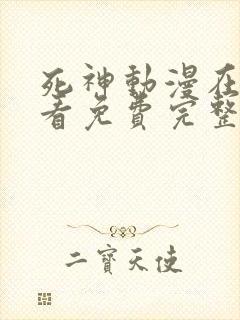 死神動漫在
看免費完整
二寶天使